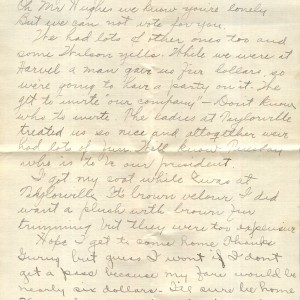 Oh Mr Hughes we know you're lonely
But we can not vote for you.
We had lots of other ones too and
some Wilson yells. While we were at
Harvel a man gave us five dollars, so
were going to have a party on it. We
get to invite our company - Don't know
who to invite. The ladies at Taylorville
treated us so nice and altogether we
had lots of fun. Will know Tuesday
who is to be our president.
I got my coat while I was at
Taylorville. It's brown velour. I did
want a plush with brown fur
trimming but they were too expensive.
Hope I get to come home Thanks
Giving but guess I won't if I don't
get a pass because my fare would be
nearly six dollars - I'll sure be home